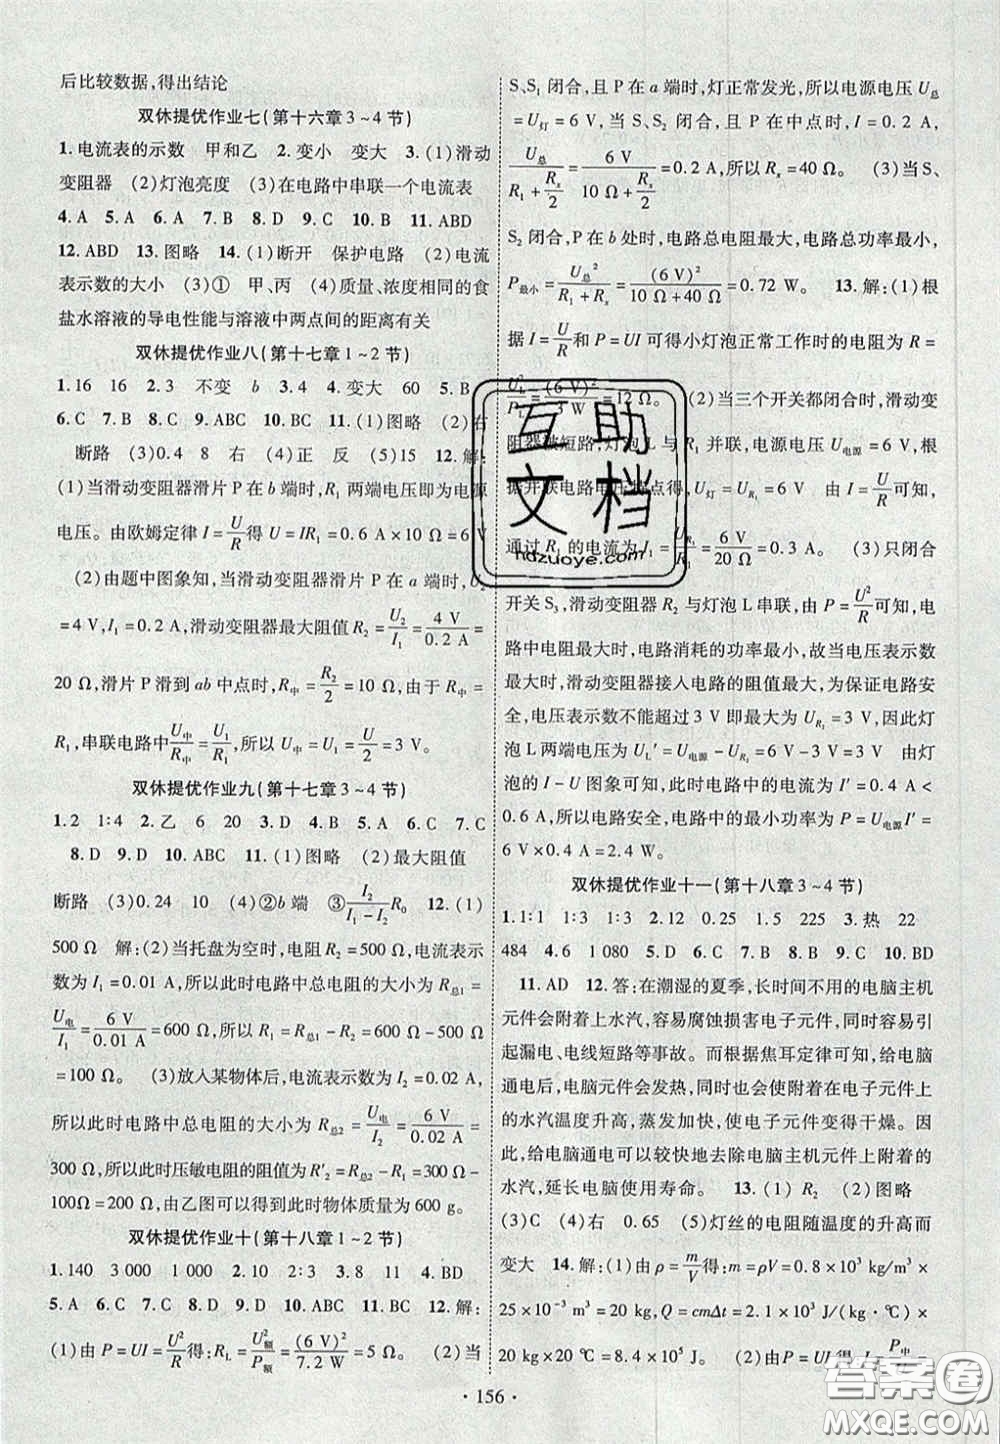 后比较数据,得出结论
双休提优作业七(第十六章3~4节)
1.电流表的示数 甲和乙 2.变小 变大 3.(1)滑动
变阻器 (2)灯泡亮度 (3)在电路中串联一个电流表
4.A 5.A 6.A 7.B 8.B 9.C 10.B 11.ABD
12.ABD 13.图略 14.(1)断开 保护电路 (2)电流
表示数的大小 (3)① 甲、丙 (4)质量、浓度相同的食
盐水溶液的导电性能与溶液中两点间的距离有关
双休提优作业八(第十七章1~2节)
1.16 16 2.3 不变 b 3.4 4.变大 60 5.B
6.C 7.B 8.C 9.ABC 10.BC 11.(1)图略 (2)右
断路 (3)0.4 8 右 (4)正 反 (5)15 12.解:
(1)当滑动变阻器滑片P在b端时,R₁两端电压即为电源
电压。由欧姆定律 I=U/R 得 U=IR₁=0.6 A×10 Ω=6 V
(2)由题中图象知,当滑动变阻器滑片P在a端时,U₂
=4 V,I₁=0.2 A,滑动变阻器最大阻值 R₂=U₂/I₁=4 V/0.2 A=
20 Ω,滑片P滑到ab中点时,R中=R₂/2=10 Ω,由于R中=
R₁,串联电路中U中/R中=U₁/R₁,所以U中=U₁=U/2=3 V。
双休提优作业九(第十七章3~4节)
1.2 1∶4 2.乙 6 20 3.D 4.B 5.A 6.C 7.C
8.D 9.D 10.ABC 11.(1)图略 (2)最大阻值
断路 (3)0.24 10 (4)②b端 ③I₂/(I₁-I₂) R₀ 12.(1)
500 Ω 解:(2)当托盘为空时,电阻R₂=500 Ω,电流表示
数为I₁=0.01 A,所以此时电路中总电阻的大小为R总1=
U电/I₁=6 V/0.01 A=600 Ω,所以R₁=R总1-R₂=600 Ω-500 Ω
=100 Ω (3)放入某物体后,电流表示数I₂=0.02 A,
所以此时电路中总电阻的大小为R总2=U电/I₂=6 V/0.02 A=
300 Ω,所以此时压敏电阻的阻值R'₂=R总2-R₁=300 Ω-
100Ω=200 Ω,由乙图可以得到此时物体质量为600 g。
双休提优作业十(第十八章1~2节)
1.140 3 000 1 000 2.10 2∶3 3.8 11 4.BD
5.A 6.C 7.B 8.A 9.BC 10.BC 11.BC 12.解:
(1)由P=UI=U²/R得:R_L=U额²/P额=(6 V)²/7.2 W=5 Ω。 (2)当
S、S₁闭合,且P在a端时,灯正常发光,所以电源电压U总
=U灯=6 V,当S、S₂闭合,且P在中点时,I=0.2 A,
U总/(R₁+Rₓ/2)=6 V/(10 Ω+Rₓ/2)=0.2 A,所以Rₓ=40 Ω。 (3)当S、
S₂闭合,P在b处时,电路总电阻最大,电路总功率最小,
P最小=U总²/(R₁+Rₓ)=(6 V)²/(10 Ω+40 Ω)=0.72 W。 13.解:(1)根
据I=U/R和P=UI可得小灯泡正常工作时的电阻为R=
U_L²/P_L=(6 V)²/3 W=12 Ω。 (2)当三个开关都闭合时,滑动变
阻器被短路,灯泡L与R₁并联,电源电压U电源=6 V,根
据并联电路电压特点得,U灯=U_R₁=6 V 由I=U/R可知,
通过R₁的电流为I₁=U_R₁/R₁=6 V/20 Ω=0.3 A。 (3)只闭合
开关S₃,滑动变阻器R₂与灯泡L串联,由P=U²/R可知,电
路中电阻最大时,电路消耗的功率最小,故当电压表示数
最大时,滑动变阻器接入电路的阻值最大,为保证电路安
全,电压表示数不能超过3 V即最大为U_R₂=3 V,因此灯
泡L两端电压为U_L'=U电源-U_R₂=6 V-3 V=3 V 由灯
泡的I-U图象可知,此时电路中的电流为I'=0.4 A<
0.5 A,所以电路安全,电路中的最小功率为P=U电源I'=
6 V×0.4 A=2.4 W。
双休提优作业十一(第十八章3~4节)
1.1∶1 1∶3 2.12 0.25 1.5 225 3.热 22
484 4.6 1 080 5.D 6.C 7.B 8.C 9.C 10.BD
11.AD 12.答:在潮湿的夏季,长时间不用的电脑主机
元件会附着上水汽,容易腐蚀损害电子元件,同时容易引
起漏电、电线短路等事故。而根据焦耳定律可知,给电脑
通电后,电脑元件会发热,一段时间会使附着在电子元件上
的水汽温度升高,蒸发加快,使电子元件变得干燥。因
此,给电脑通电可以较快地去除电脑主机元件上附着的
水汽,延长电脑使用寿命。 13.(1)R₂ (2)图略
(3)C (4)右 0.65 (5)灯丝的电阻随温度的升高而
变大 14.解:(1)由ρ=m/V得:m=ρV=0.8×10³ kg/m³×
25×10⁻³ m³=20 kg,Q=cmΔt=2.1×10³ J/(kg·℃)×
20 kg×20 ℃=8.4×10⁵ J。 (2)由P=UI得 I中=P中/U
·156·
互助
文档
hdzuoye.com
答案圈
MXQE.COM